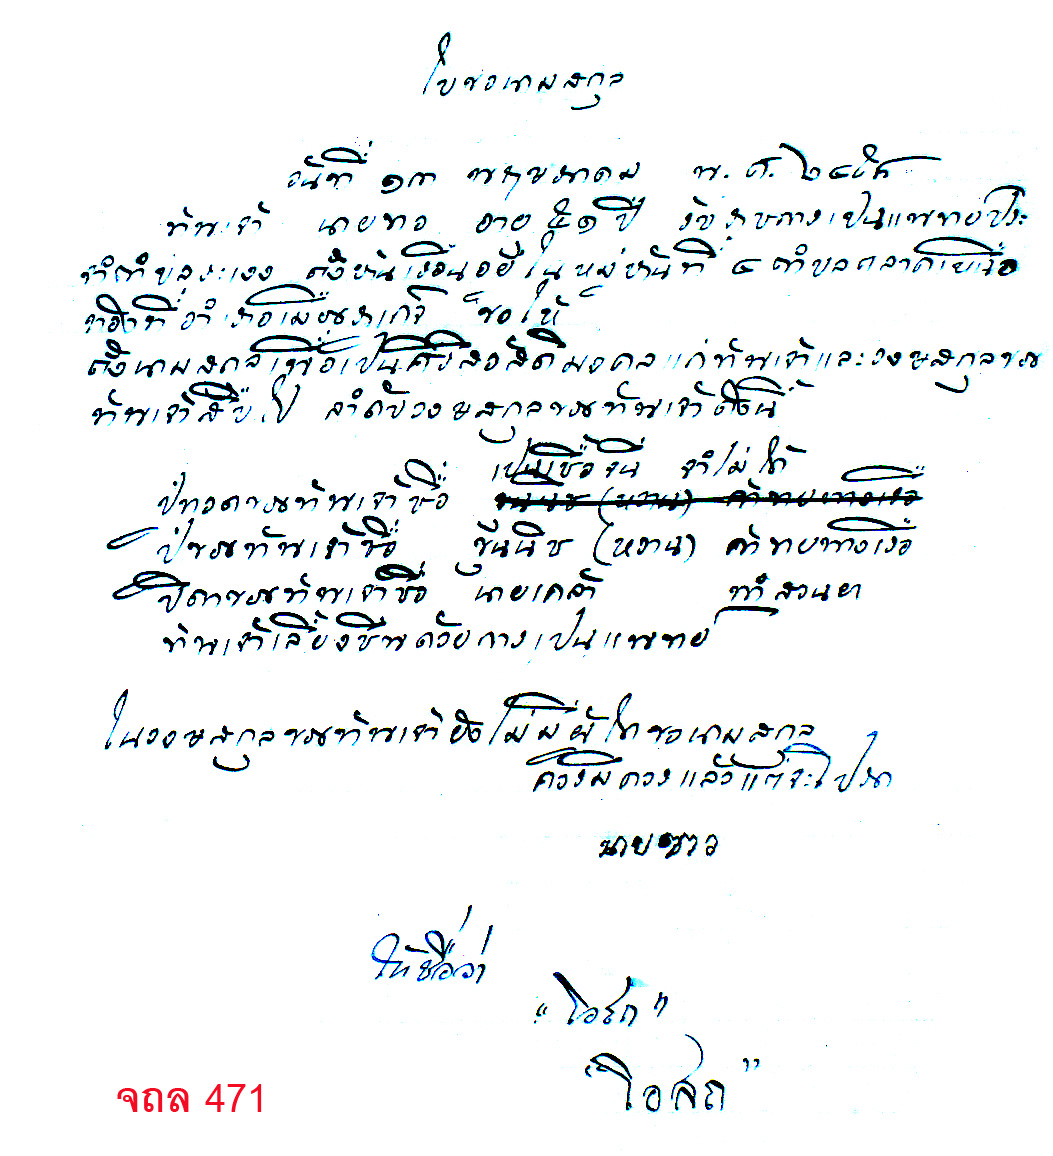 ใบขอนามสกุล
วันที่ ๑๓ พฤษภาคม พ.ศ. ๒๔๕๘
ข้าพเจ้า นาย อายุ ๕๑ ปี รับราชการเป็นแพทย์ประ
จำตำบล ตั้งบ้านเรือนอยู่ในหมู่บ้านที่ ๔ ตำบลตลาด
ท้องที่อำเภอเมือง ขอให้
ตั้งนามสกุลเพื่อเป็นศิริสวัสดิมงคลแก่ข้าพเจ้าและวงษสกุลของ
ข้าพเจ้าสืบไป ลำดับวงษสกุลของข้าพเจ้าดังนี้
เป็นเชื้อจีน จำไม่ได้
ปู่ทวดของข้าพเจ้าชื่อ
ปู่ของข้าพเจ้าชื่อ ขุนนิช (หวาน) ค้าขายทางเรือ
บิดาของข้าพเจ้าชื่อ นายเคล้า ทำสวนยา
ข้าพเจ้าเลี้ยงชีพด้วยการเป็นแพทย์
ในวงษสกุลของข้าพเจ้ายังไม่มีผู้ใดขอนามสกุล
ควรมิควรแล้วแต่จะโปรด
นายขาว
ให้ชื่อว่า
"โอสถ"
"โอสถ"
จถล 471